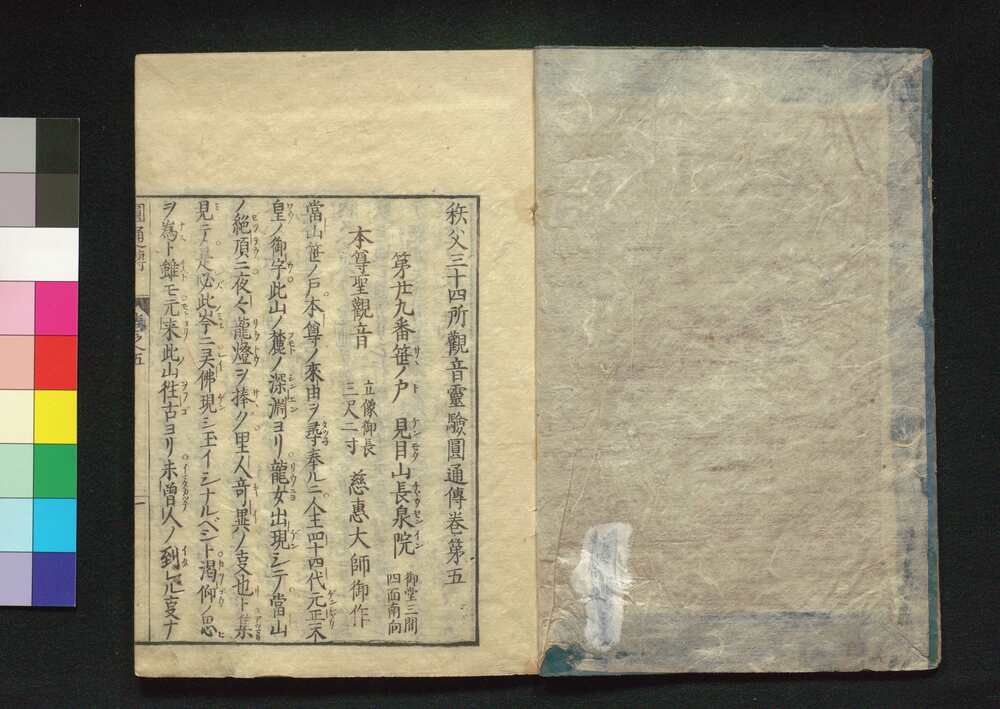 秩父三十四所觀音靈驗圓通傳巻第五
第廿九番笹ノ戸 見目山長泉院 御堂三間四面南向
本尊聖觀音 立像御長三尺二寸 慈惠大師御作
當山笹ノ戸本尊ノ來由ヲ尋奉ルニ人王四十四代元正天
皇ノ御宇此山ノ麓ノ深淵ヨリ龍女出現シテ當山
ノ絶頂ニ夜々龍燈ヲ捧ク里人竒異ノ叓也ト集
見テ是必此岑ニ灵佛現シ玉イシナルベシト渇仰ノ思
ヲ為ト雖モ元来此山往古ヨリ未曾人ノ到レル叓ナ